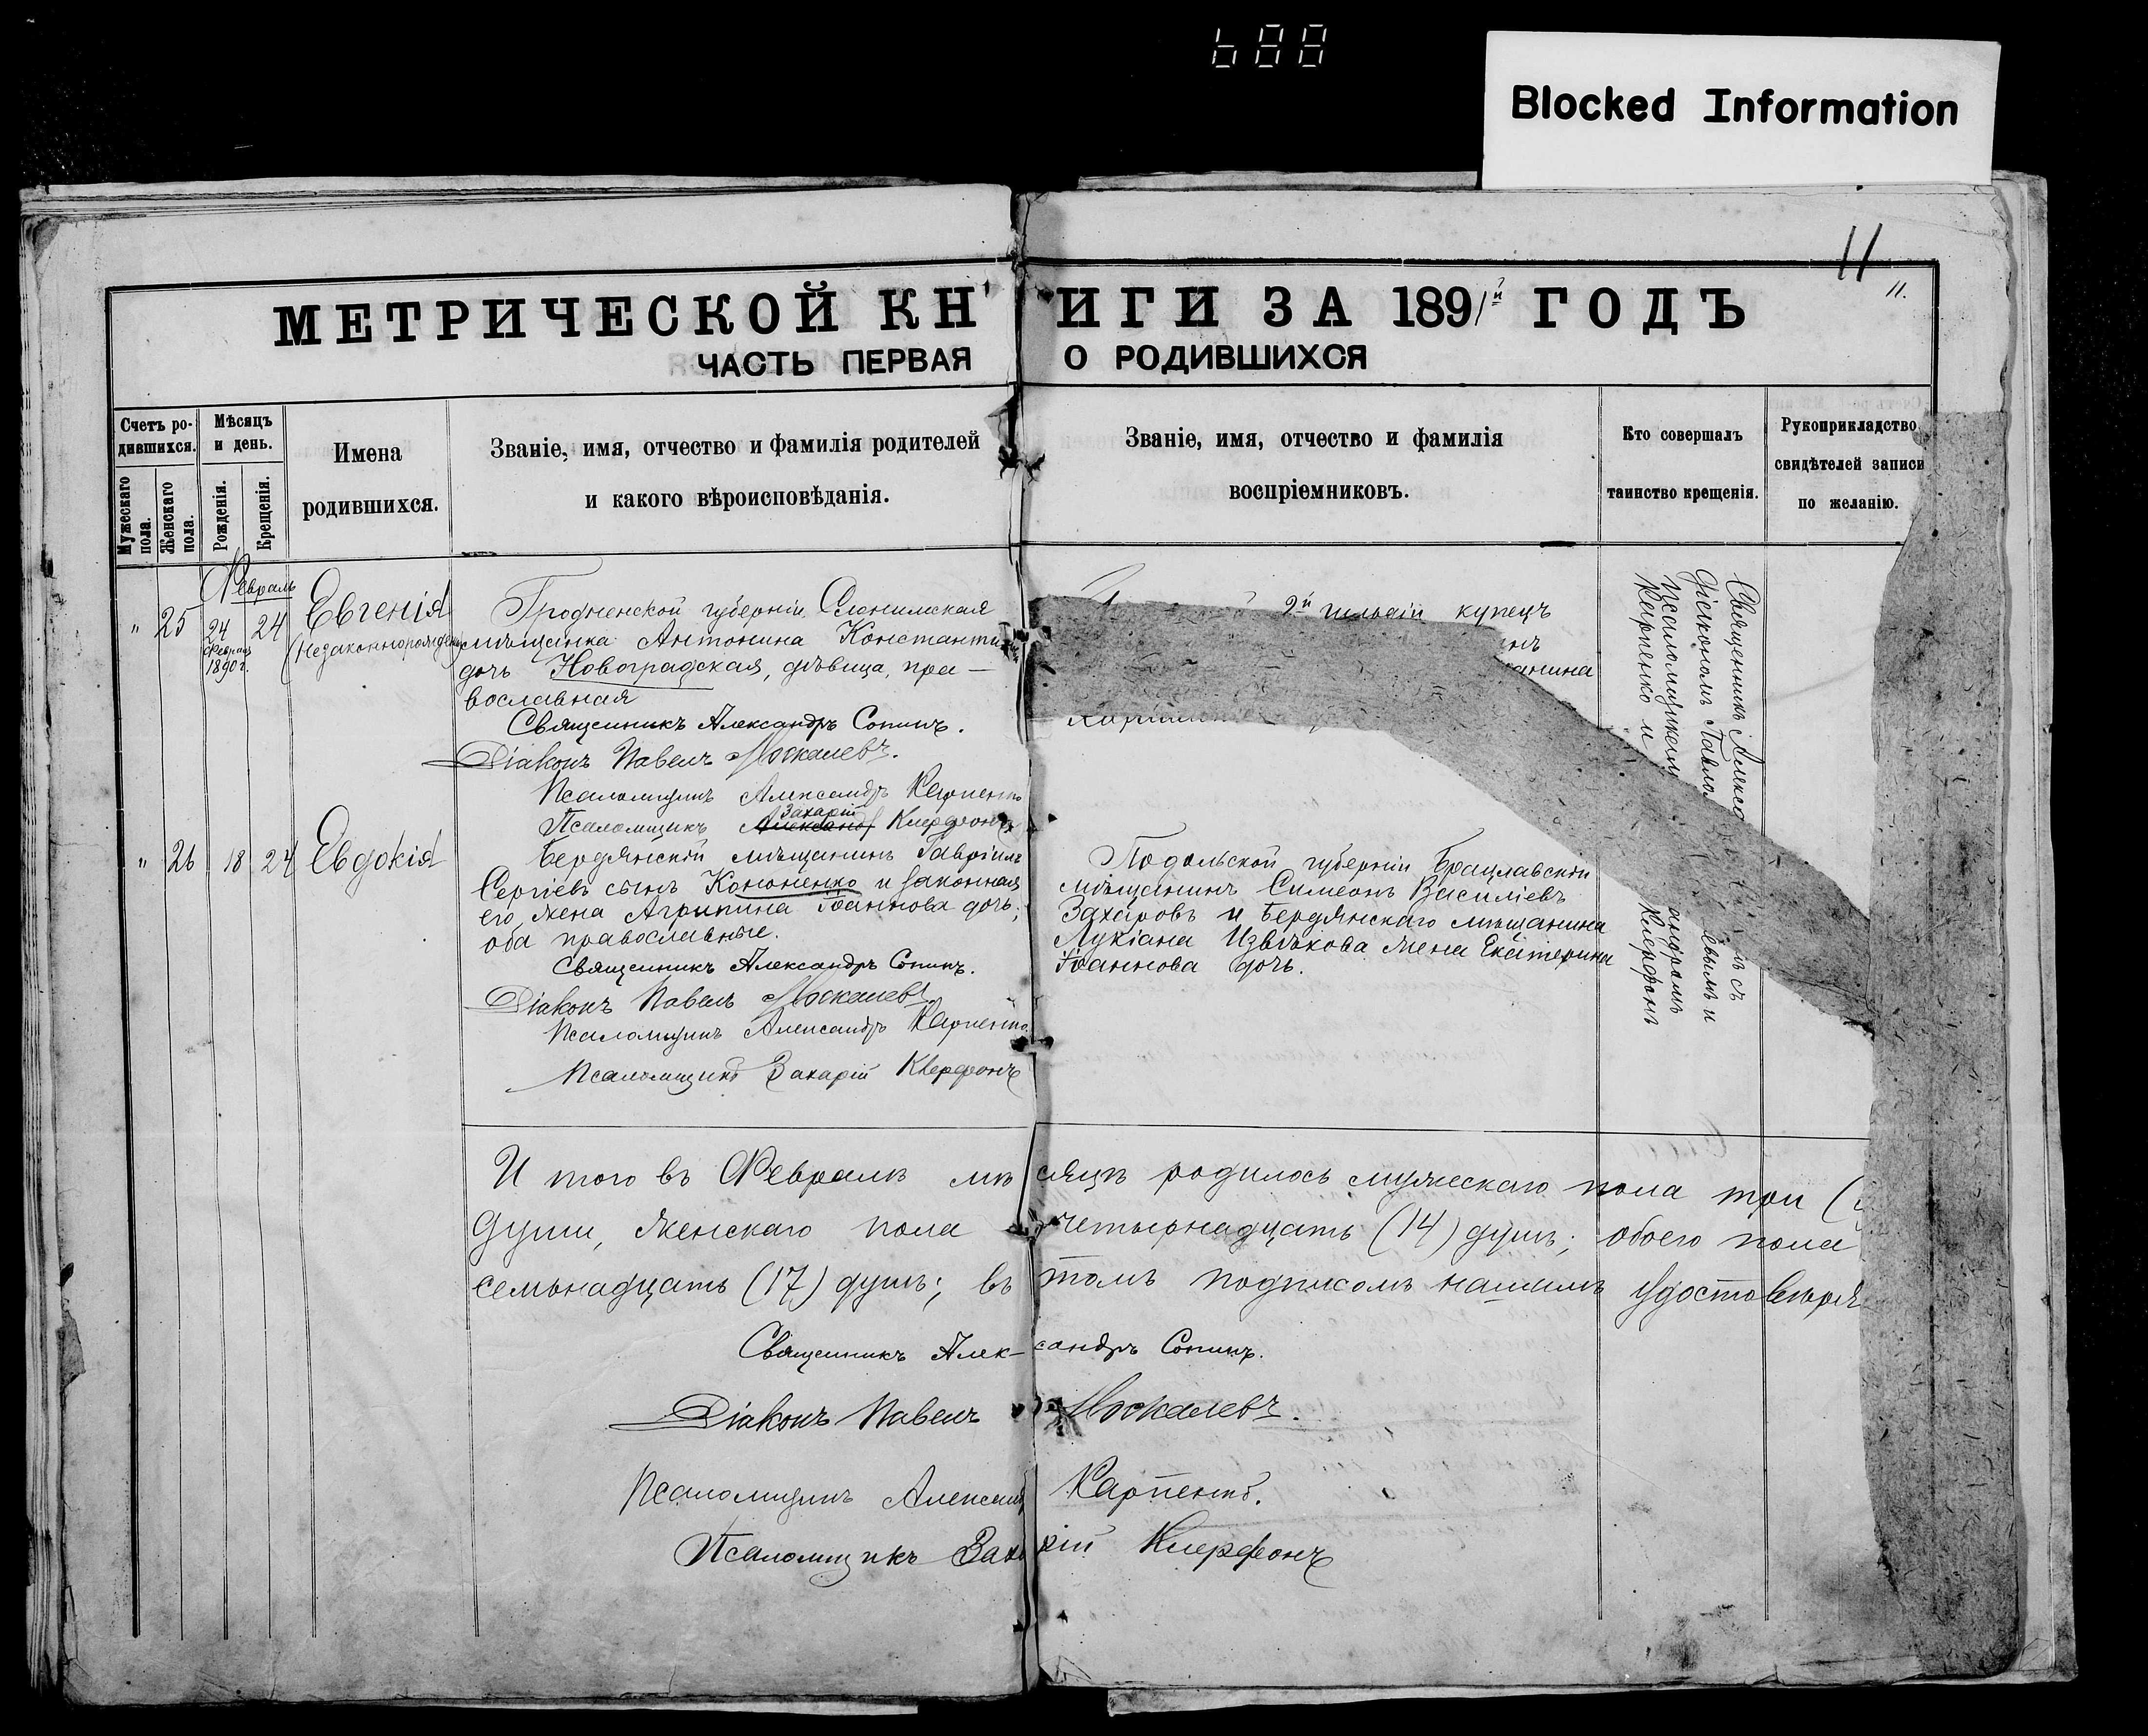 688
Blocked Information
11
11.
МЕТРИЧЕСКОЙ КНИГИ ЗА 1891й ГОДЪ
ЧАСТЬ ПЕРВАЯ О РОДИВШИХСЯ
Счетъ ро-
дившихся.
Мужескаго пола.
Женскаго пола.
Мѣсяцъ
и день.
Рожденія.
Крещенія.
Имена
родившихся.
Званіе, имя, отчество и фамилія родителей
и какого вѣроисповѣданія.
Званіе, имя, отчество и фамилія
воспріемниковъ.
Кто совершалъ
таинство крещенія.
Рукоприкладство
свидѣтелей записи
по желанію.
Февраль
" 25 24 Февраля 1890 г. 24 Евгенія
(Незаконнорожден
Гродненской губерніи Слонимская
мѣщанка Антонина Константи
дочь Новоградская, дѣвица, пра-
вославная
Священникъ Александръ Сопинъ.
Діаконъ Павелъ Москалевъ.
Псаломщикъ Александръ Карпенко
Захарій
Псаломщикъ Александръ Клерфонъ
2й гильдіи купецъ
инъ
анина
Священникъ Алекса
Діаконъ Павло
Псаломщиками
Карпенко и
лъ съ
евымъ и
андромъ
Клерфонъ
" 26 18 24 Евдокія
Бердянскій мѣщанинъ Гавріилъ
Сергіевъ сынъ Кононенко и законная
его жена Агрипина Іоаннова дочь;
оба православные.
Священникъ Александръ Сопинъ.
Діаконъ Павелъ Москалевъ.
Псаломщикъ Александръ Карпенко.
Псаломщикъ Захарій Клерфонъ
Подольской губерніи Брацлавскій
мѣщанинъ Симеонъ Василіевъ
Захаровъ и Бердянскаго мѣщанина
Лукіана Извѣкова жена Екатерина
Іоаннова дочь.
И того въ Февралѣ мѣсяцѣ родилось мужескаго пола три (
души, женскаго пола четырнадцать (14) душъ; обоего пола
семьнадцать (17) душъ; въ томъ подписомъ нашимъ удостовѣря
Священникъ Алек-сандръ Сопинъ.
Діаконъ Павелъ Москалевъ.
Псаломщикъ Александ Карпенко.
Псаломщикъ Захарій Клерфонъ